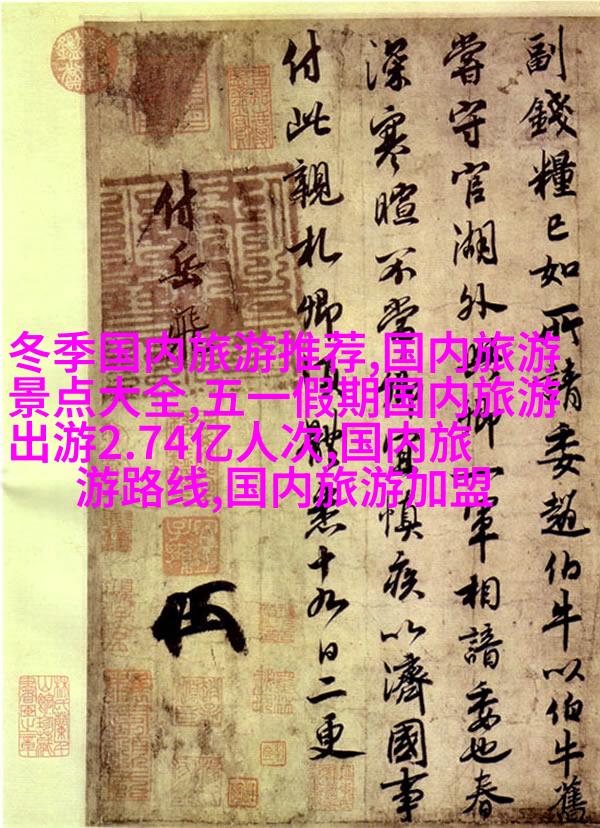 冬季国内旅游推荐,国内旅游
景点大全,五一假期国内旅游
出游2.74亿人次,国内旅
游路线,国内旅游加盟
副錢糧已如所請委趙伯牛以伯牛舊
嘗守官湖外卿一軍相諳委也春
深寒暄不常宜慎疾以濟國事
付此親札卿體悉十九日二更
付岳飛